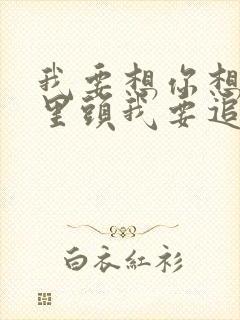 我要想你想
里頭我要追
白衣紅衫